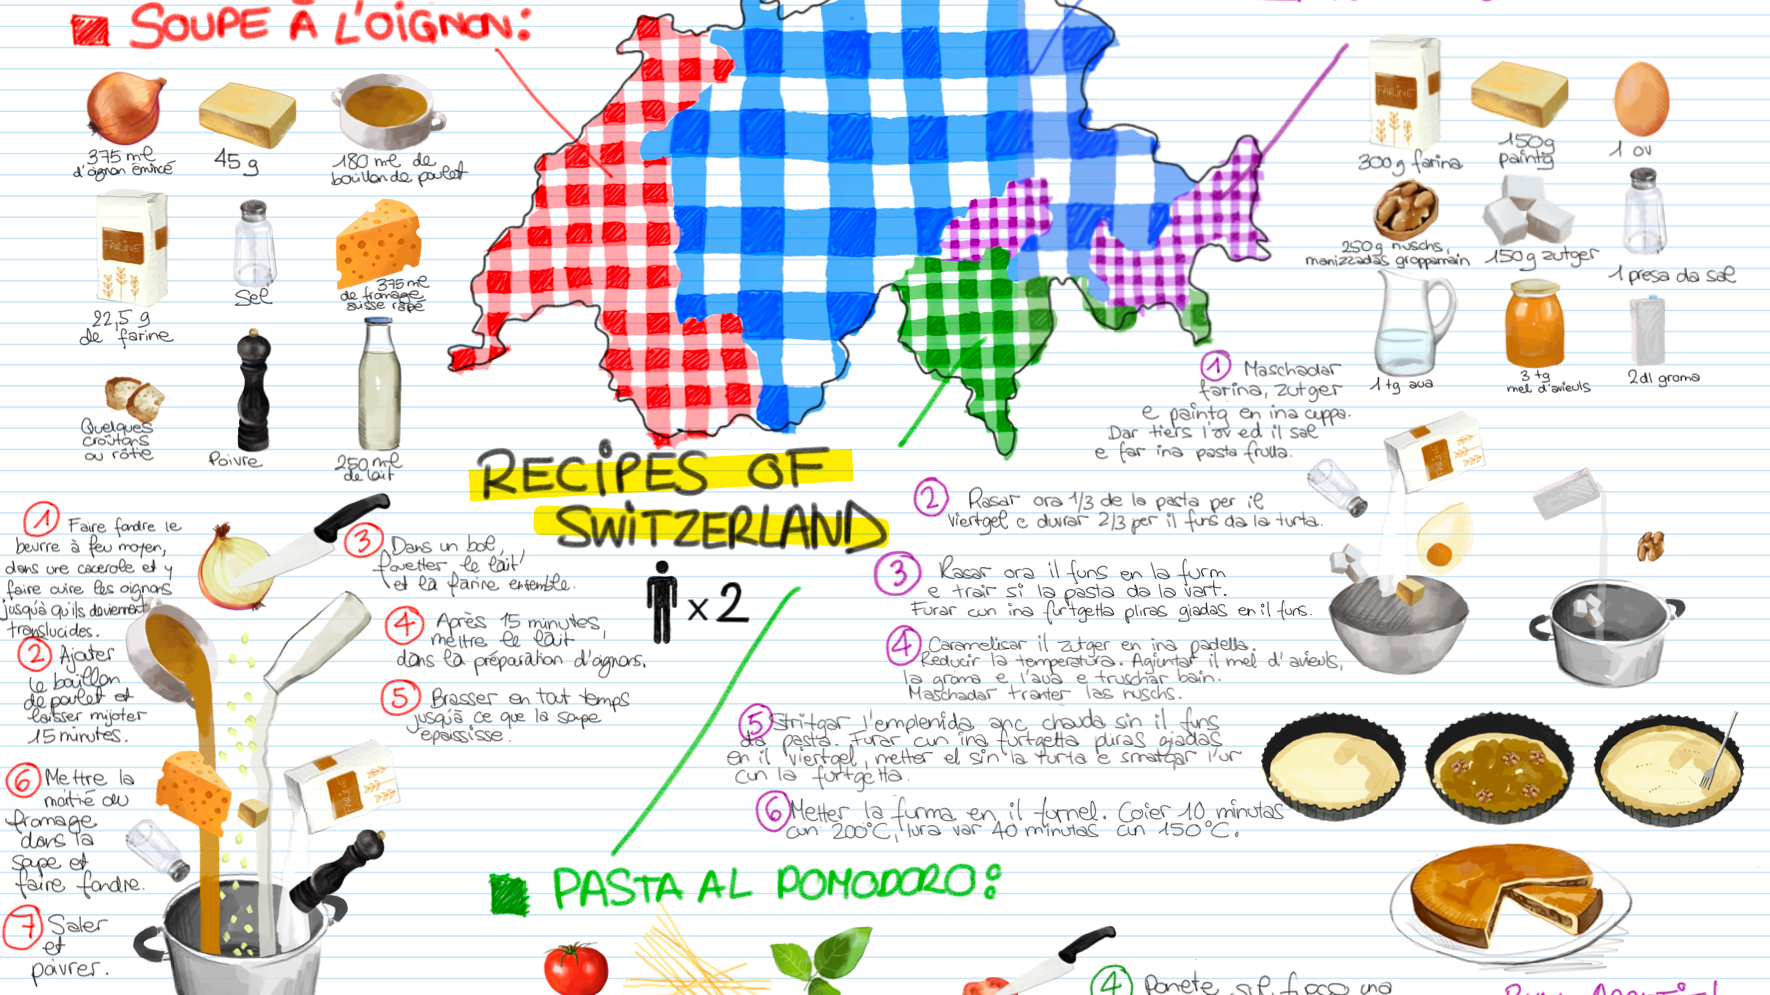 SOUPE À L'OIGNON:
375 ml
d'oignon émincé
45 g
180 ml de
bouillon de poulet
FARINE
22,5 g
de farine
Sel
375 ml
de fromage
suisse râpé
Quelques
croûtons
ou rôtie
Poivre
250 ml
de lait
1 Faire fondre le
beurre à feu moyen,
dans une cacerole et y
faire cuire les oignons
jusqu'à qu'ils deviennent
translucides.
2 Ajouter
le bouillon
de poulet et
laisser mijoter
15 minutes.
3 Dans un bol,
fouetter le lait
et la farine ensemble.
4 Après 15 minutes,
mettre le lait
dans la préparation d'oignons.
5 Brasser en tout temps
jusqu'à ce que la soupe
épaississe.
6 Mettre la
moitié du
fromage
dans la
soupe et
faire fondre.
7 Saler
et
poivrer.
FARINE
RECIPES OF
SWITZERLAND
x 2
FARINE
300 g farina
150g
paintg
1 ov
250 g nuschs,
manizzadas groppamain
150 g zutger
1 presa da sal
1 tg aua
3 tg
mel d'avieuls
2 dl groma
1 Maschadar
farina, zutger
e paintg en ina cuppa.
Dar tiers l'ov ed il sal
e far ina pasta frolla.
2 Rasar ora 1/3 de la pasta per il
viertgel e duvrar 2/3 per il funs da la turta.
3 Rasar ora il funs en la furm
e trair si la pasta da la vart.
Furar cun ina furtgetta pliras giadas en il funs.
4 Caramelisar il zutger en ina padella.
Reducir la temperatura. Agiuntar il mel d'avieuls,
la groma e l'aua e truschar bain.
Maschadar tranter las nuschs.
5 Stritgar l'emplenida anc chauda sin il funs
da pasta. Furar cun ina furtgetta pliras giadas
en il viertgel, metter el sin la turta e smatgar l'ur
cun la furtgetta.
6 Metter la furma en il furnel. Coier 10 minutas
cun 200°C, lura var 40 minutas cun 150°C.
PASTA AL POMODORO:
4